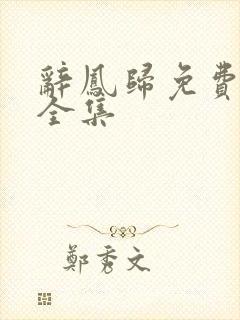 辭鳳歸免費
全集
鄭秀文